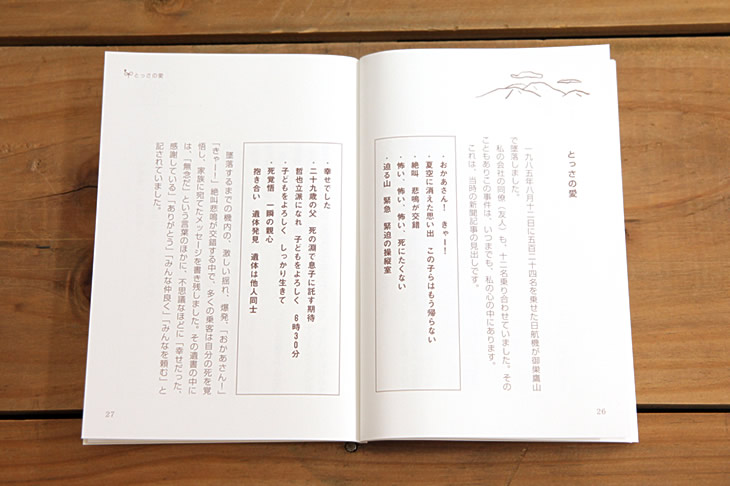 とっさの愛
一九八五年八月十二日に五百二十四名を乗せた日航機が御巣鷹山
で墜落しました。
私の会社の同僚（友人）も、十二名乗り合わせていました。その
こともありこの事件は、いつまでも、私の心の中にあります。
これは、当時の新聞記事の見出しです。
・おかあさん！　きゃー！
・夏空に消えた思い出　この子らはもう帰らない
・絶叫　悲鳴が交錯
・怖い、怖い、怖い、死にたくない
・迫る山　緊急　緊迫の操縦室
26
とっさの愛
・幸せでした
・二十九歳の父　死の淵で息子に託す期待
哲也立派になれ　子どもをよろしく　6時30分
・子どもをよろしく　しっかり生きて
・死覚悟　一瞬の親心
抱き合い　遺体発見　遺体は他人同士
墜落するまでの機内の、激しい揺れ、爆発、「おかあさん！」
「きゃー！」絶叫悲鳴が交錯する中で、多くの乗客は自分の死を覚
悟し、家族に宛てたメッセージを書き残しました。その遺書の中に
は、「無念だ」という言葉のほかに、不思議なほどに「幸せだった、
感謝している」「ありがとう」「みんな仲良く」「みんなを頼む」と
記されていました。
27